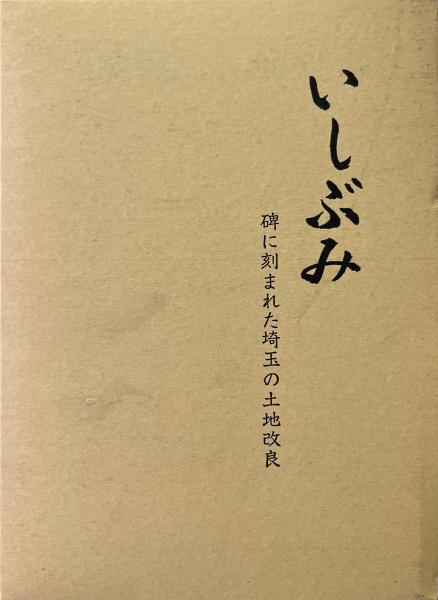 いしぶみ
碑に刻まれた埼玉の土地改良